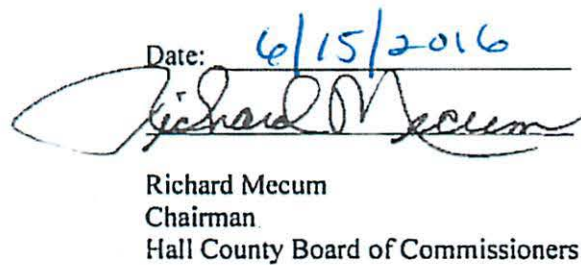 Date: 6/15/2016
Richard Mecum
Richard Mecum
Chairman
Hall County Board of Commissioners